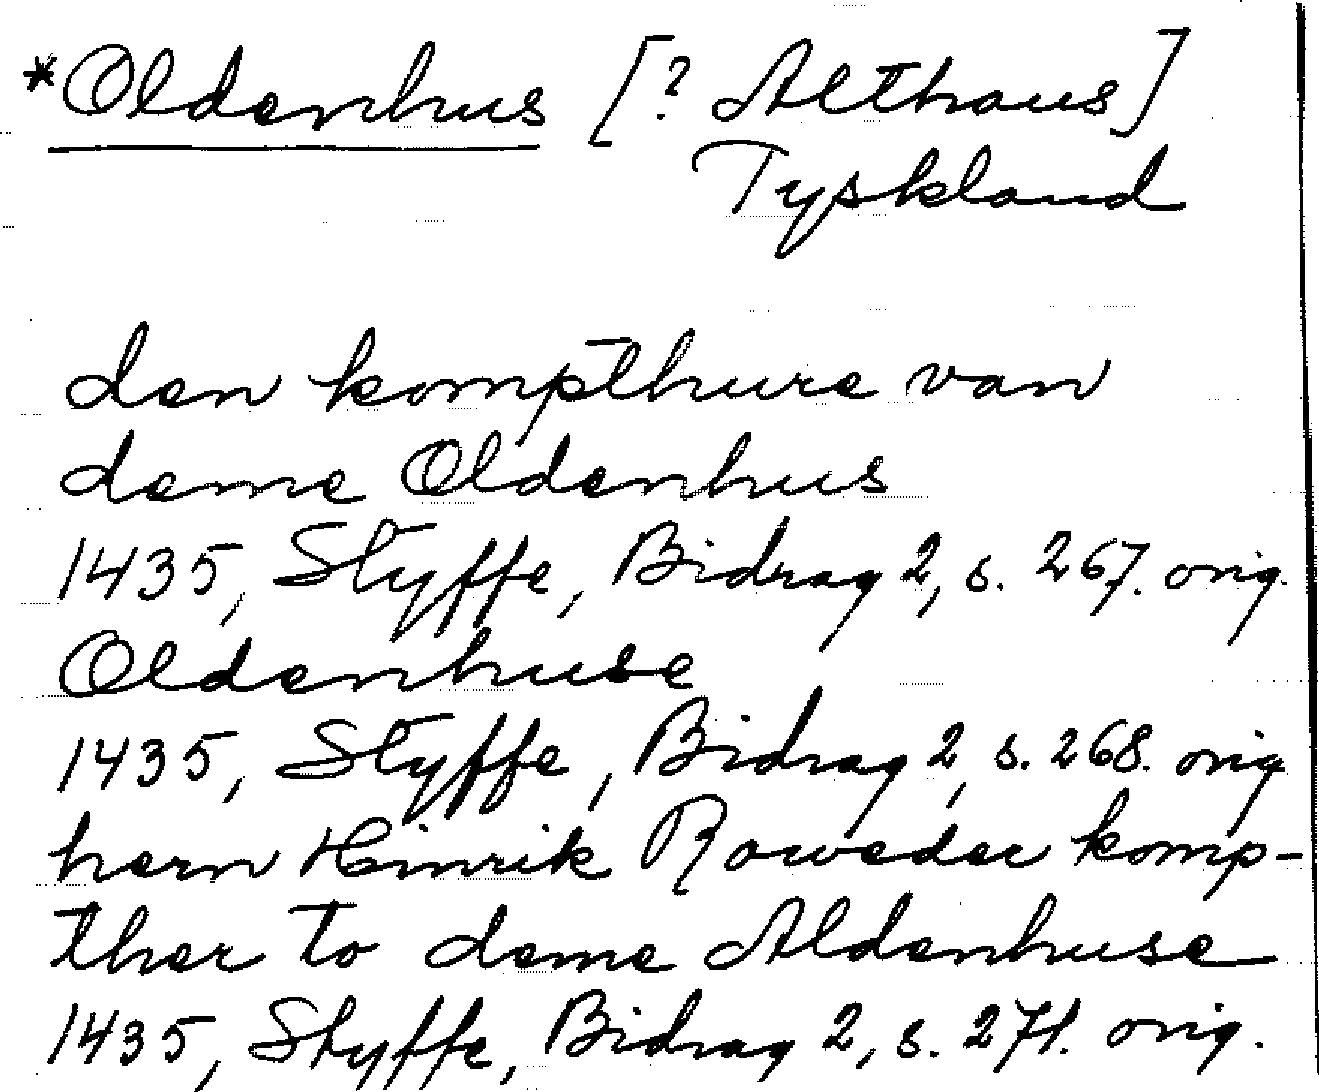 *Oldenhus [? Althaus]
Tyskland
den kompthure van
deme Oldenhus
1435, Styffe, Bidrag 2, s. 267. orig.
Oldenhuse
1435, Styffe, Bidrag 2, s. 268. orig
hern Hinrik Roweder komp-
ther to deme Aldenhuse
1435, Styffe, Bidrag 2, s. 271. orig.